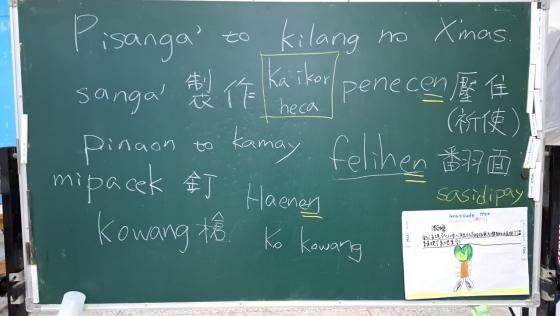 Pisanga' to kilang no X'mas.
sanga' 製作
ka ikor
heca
penecen 壓住
(祈使)
pinaon to kamay
felihen 翻面
mipacek 釘
Haenen
sasidipay
kowang 槍
ko kowang